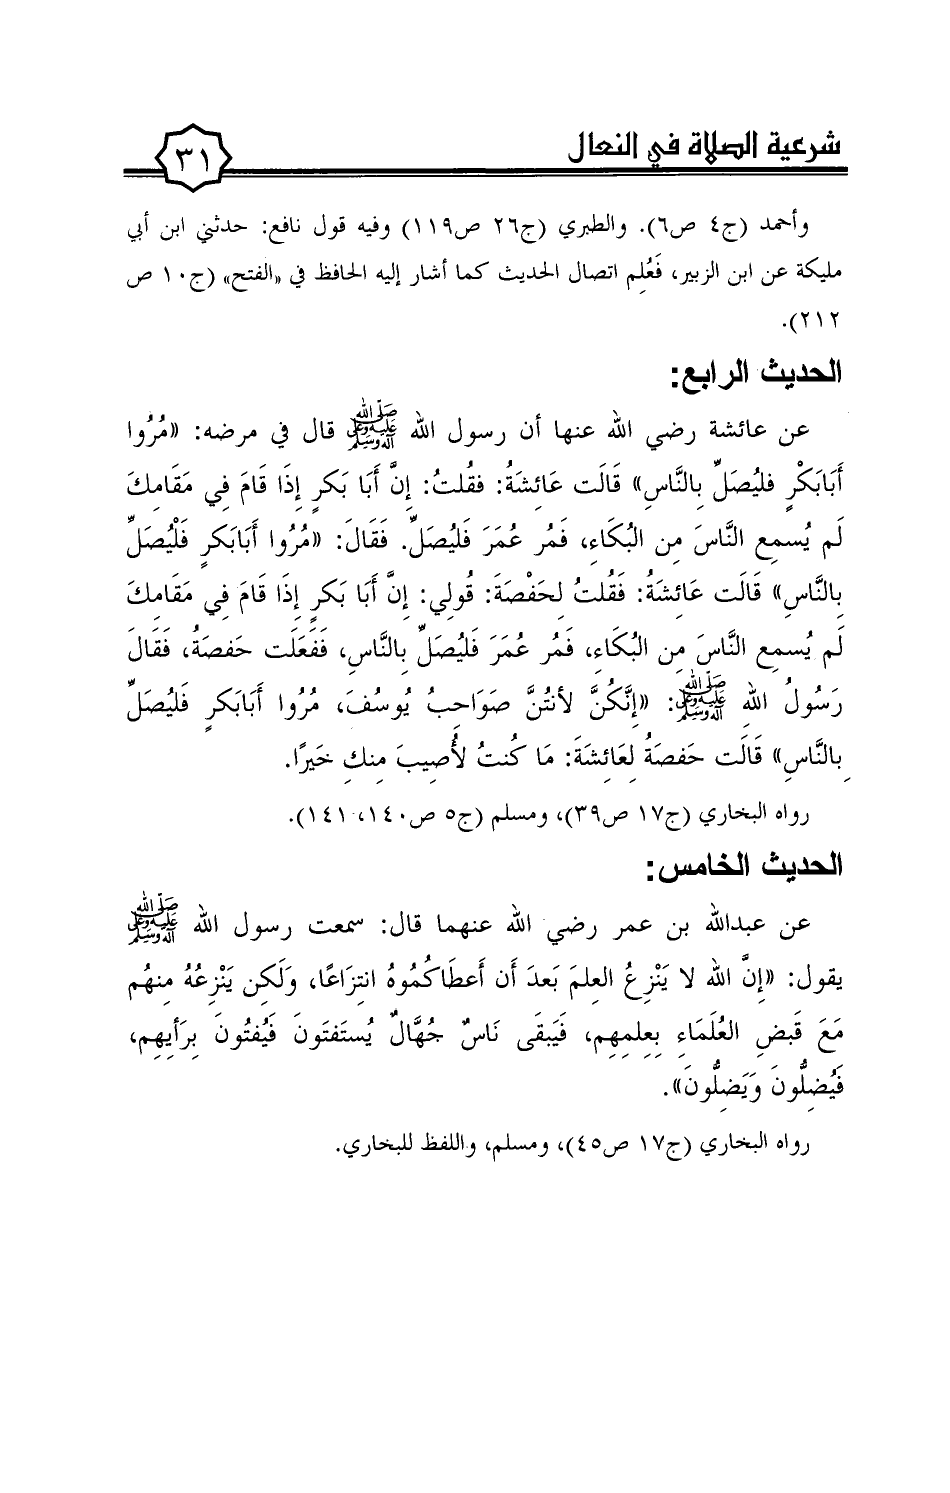 شرعية الصلاة في النعال
٣١
وأحمد (ج٤ ص٦). والطبري (ج٢٦ ص١١٩) وفيه قول نافع: حدثني ابن أبي
مليكة عن ابن الزبير، فَعُلِم اتصال الحديث كما أشار إليه الحافظ في «الفتح» (ج١٠ ص
٢١٢).
الحديث الرابع:
عن عائشة رضي الله عنها أن رسول الله ﷺ قال في مرضه: «مُرُوا
أَبَابَكْرٍ فليُصَلِّ بِالنَّاسِ» قَالَت عَائِشَةُ: فقُلتُ: إِنَّ أَبَا بَكرٍ إِذَا قَامَ فِي مَقَامِكَ
لَم يُسمِع النَّاسَ مِن البُكَاءِ، فَمُر عُمَرَ فَليُصَلِّ. فَقَالَ: «مُرُوا أَبَابَكرٍ فَلْيُصَلِّ
بِالنَّاسِ» قَالَت عَائِشَةُ: فَقُلتُ لِحَفْصَةَ: قُولِي: إِنَّ أَبَا بَكرٍ إِذَا قَامَ فِي مَقَامِكَ
لَم يُسمِع النَّاسَ مِن البُكَاءِ، فَمُر عُمَرَ فَليُصَلِّ بِالنَّاسِ، فَفَعَلَت حَفصَةُ، فَقَالَ
رَسُولُ اللهِ ﷺ: «إِنَّكُنَّ لأنتُنَّ صَوَاحِبُ يُوسُفَ، مُرُوا أَبَابَكرٍ فَليُصَلِّ
بِالنَّاسِ» قَالَت حَفصَةُ لِعَائِشَةَ: مَا كُنتُ لأُصِيبَ مِنكِ خَيرًا.
رواه البخاري (ج١٧ ص٣٩)، ومسلم (ج٥ ص١٤٠، ١٤١).
الحديث الخامس:
عن عبدالله بن عمر رضي الله عنهما قال: سمعت رسول الله ﷺ
يقول: «إِنَّ الله لا يَنْزِعُ العِلمَ بَعدَ أَن أَعطَاكُمُوهُ انتِزَاعًا، وَلَكِن يَنْزِعُهُ مِنهُم
مَعَ قَبضِ العُلَمَاءِ بِعِلمِهِم، فَيَبقَى نَاسٌ جُهَّالٌ يُستَفتَونَ فَيُفتُونَ بِرَأيِهِم،
فَيُضِلُّونَ وَيَضِلُّونَ».
رواه البخاري (ج١٧ ص٤٥)، ومسلم، واللفظ للبخاري.